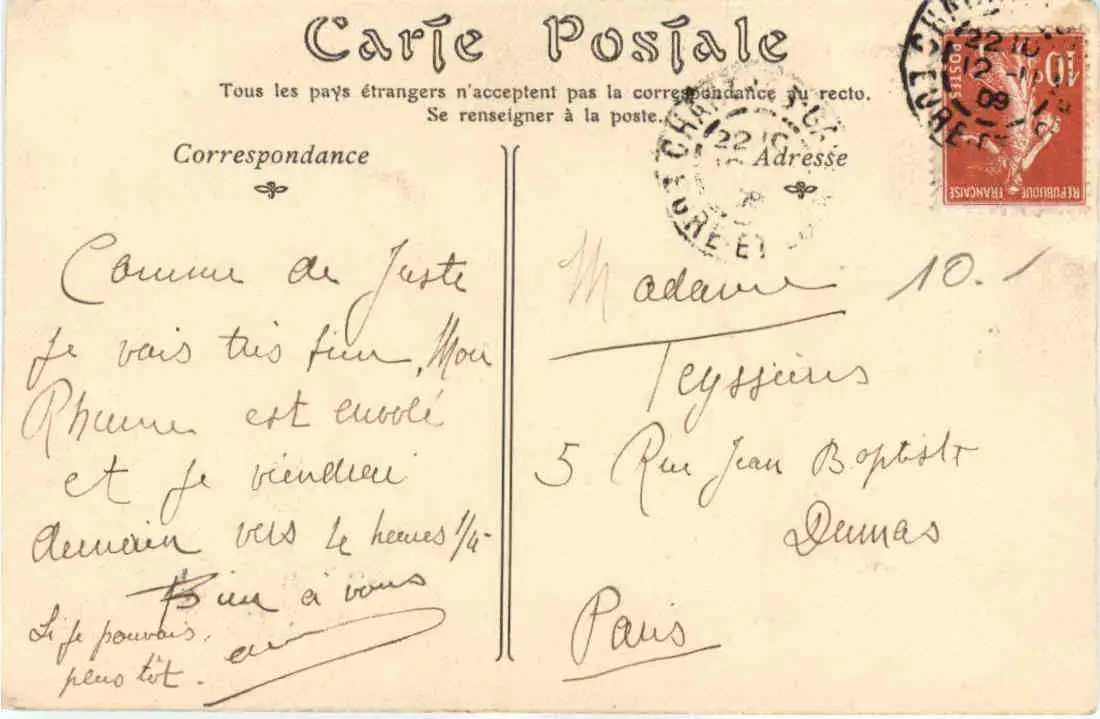 Carte Postale
Tous les pays étrangers n'acceptent pas la correspondance au recto.
Se renseigner à la poste.
Correspondance
Adresse
22 10
12 -11
09
EURE-ET
10c
POSTES
RÉPUBLIQUE FRANÇAISE
22 10
EURE ET
Comme de Juste
je vais très bien, Mon
Rhume est envolé
et je viendrai
demain vers 4 heures 1/4-
Bien à vous
Si je pouvais,
plus tôt.
Madame
10.
5 Rue Jean Baptiste
Dumas
Paris